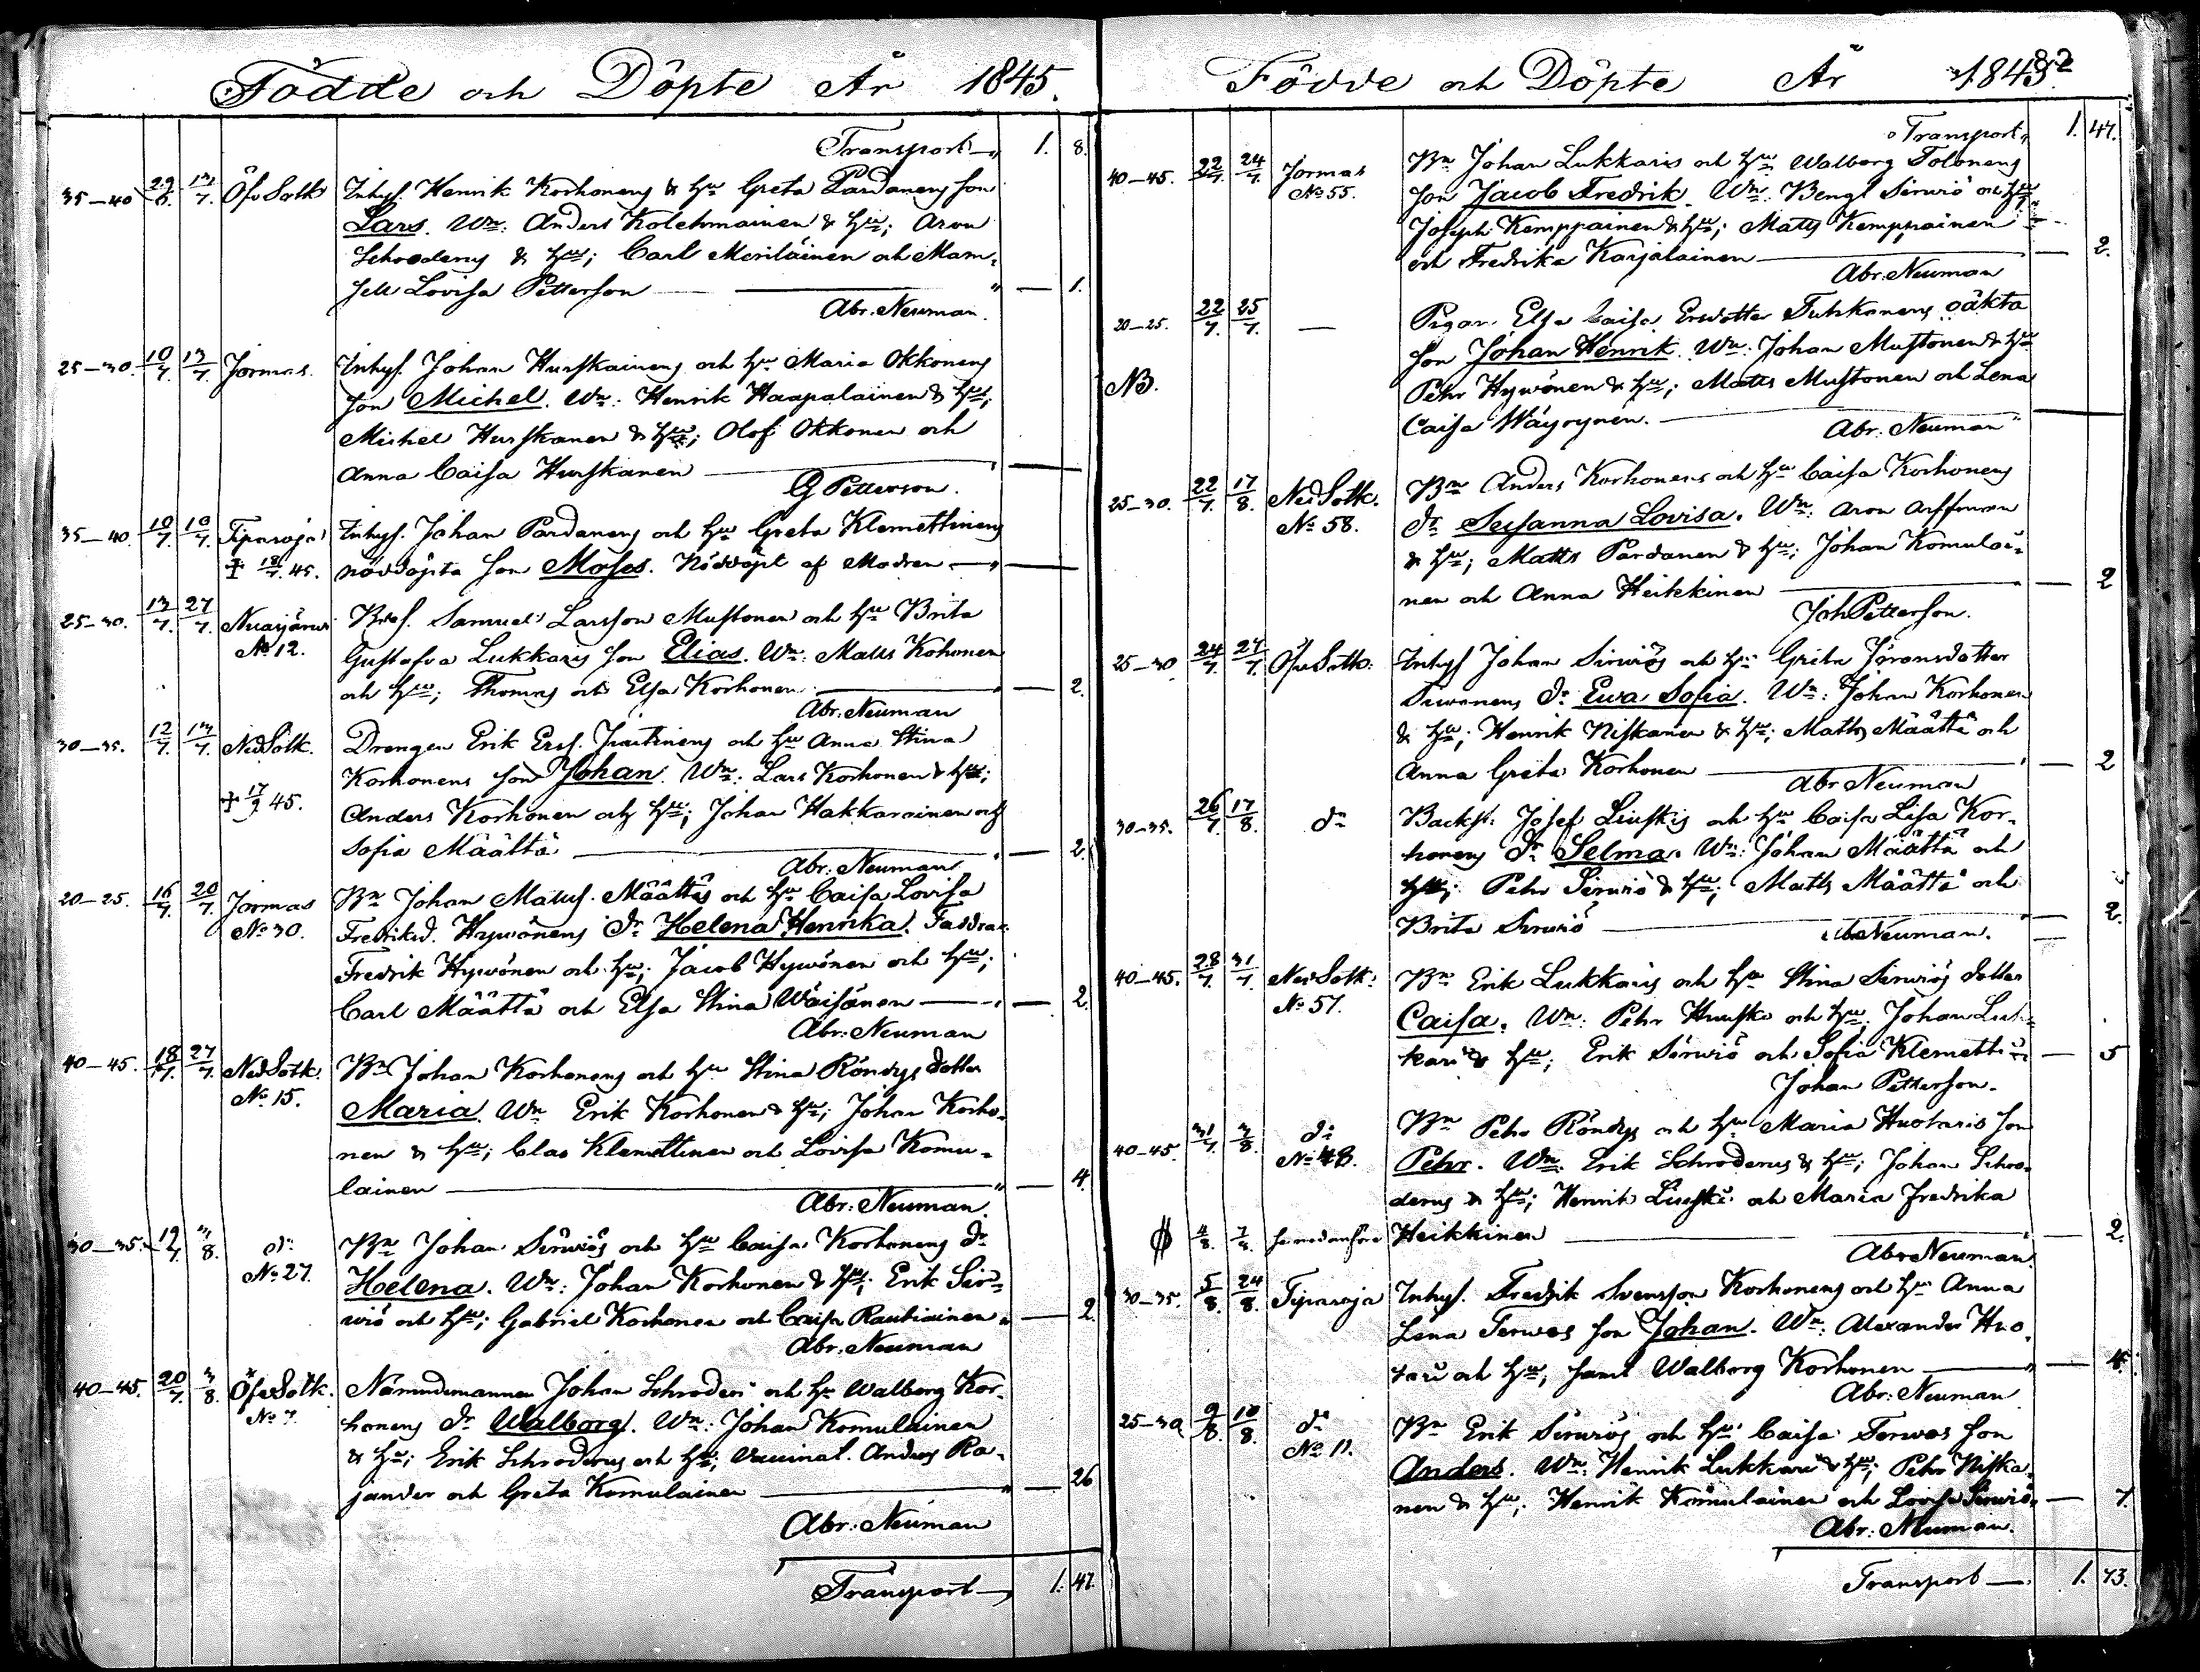 Födde och Döpte År 1845.
Transport 1. 8.
35–40 29/6. 13/7. Öfv Sotk Inhys. Henrik Korhonens & hu Greta Pardanens son
Lars. Wn: Anders Kolehmainen & hu; Aron
Schroderus & hu; Carl Meriläinen och Mam-
sell Lovisa Petterson — 1.
Abr. Neuman.
25–30. 10/7. 13/7. Jormas. Inhys. Johan Hurskainens och hu Maria Okkonens
son Michel. Wn: Henrik Haapalainen & hu;
Michel Hurskanen & hu; Olof Okkonen och
Anna Caisa Hurskanen —
G Petterson.
35–40. 10/7. 10/7. Tiparoja Inhys. Johan Pardanens och hu Greta Klemettinens
† 18/7. 45. nöddöpta son Moses. Nöddöpt af Modren —
25–30. 13/7. 27/7. Nuasjärvi Samuel Larsson Mustonen och hu Brita
No 12. Gustafva Lukkaris son Elias. Wn: Matts Kohonen
och hu; Thomas och Elsa Korhonen — 2.
Abr. Neuman
30–35. 12/7. 13/7. Ned Sotk. Drengen Erik Ers. och hu Anna Stina
Korhonens son Johan. Wn: Lars Korhonen & hu;
† 17/9 45. Anders Korhonen och hu; Johan Hakkarainen och
Sofia Määttä — 2.
Abr. Neuman
20–25. 16/7. 20/7. Jormas Bn Johan Matts. Määttäs och hu Caisa Lovisa
No 30. Fredriksd. Hyvönens dr Helena Henrika. Faddrar
Fredrik Hyvönen och hu; Jacob Hyvönen och hu;
Carl Määttä och Elsa Stina Wäisänen — 2.
Abr. Neuman
40–45. 18/7. 27/7. Ned Sotk. Bn Johan Korhonens och hu Stina Röndys dotter
No 15. Maria. Wn Erik Korhonen & hu; Johan Korho-
nen & hu; Clas Klemettinen och Lovisa Komu-
lainen — 4.
Abr: Neuman.
30–35. 19/7 3/8. do Bn Johan Servös och hu Caisa Korhonens dr
No 27. Helena. Wn: Johan Korhonen & hu; Erik Ser-
viö och hu; Gabriel Korhonen och Caisa Rautiainen — 2.
Abr. Neuman
40–45. 20/7. 3/8. Öfv Sotk. Nämndemannen Johan Schroderi och hu Walborg Kor-
No 7. honens dr Walborg. Wn: Johan Komulainen
& hu; Erik Schroderus och hu; Vaccinat. Anders Ka-
jander och Greta Komulainen — 26
Abr: Neuman
Transport — 1. 47.
Födde och Döpte År 1845.
Transport 1. 47.
40–45. 22/7. 24/7. Jormas Bn Johan Lukkaris och hu Walborg Tolonens
No 55. son Jacob Fredrik. Wn: Bengt Serviö och hu
Joseph Kemppainen & hu; Matts Kemppainen
och Fredrika Karjalainen — 2.
Abr. Neuman
20–25. 22/7. 25/7. — Pigan Elsa Caisa Ersdotter oäkta
son Johan Henrik. Wn: Johan Mustonen & hu
NB. Pehr Hyvönen & hu; Matts Mustonen och Lena
Caisa Wäyrynen. —
Abr: Neuman
25–30. 22/7. 17/8. Ned Sotk. Bn Anders Korhonens och hu Caisa Korhonens
No 58. dr Susanna Lovisa. Wn: Aron Arffman
& hu; Matts Pardanen & hu; Johan Komulai-
nen och Anna Heikkinen — 2
Joh Petterson.
25–30 24/7 27/7. Öfv Sotk. Inhys Johan Serviös och hu Greta Göransdotter
dr Ewa Sofia. Wn: Johan Korhonen
& hu; Henrik Niskanen & hu; Matts Määttä och
Anna Greta Korhonen — 2
Abr Neuman
30–35. 26/7 17/8. do Backst. Josef Liuskis och hu Caisa Lisa Kor-
honens dr Selma. Wn: Johan Määttä och
hu; Pehr Serviö & hu; Matts Määttä och
Brita Serviö — 2.
Abr Neuman.
40–45. 28/7. 31/7. Ned Sotk. Bn Erik Lukkaris och hu Stina Serviös dotter
No 57. Caisa. Wn: Pehr och hu; Johan Luk-
kari & hu; Erik Serviö och Sofia Klemetti — 5
Johan Petterson.
40–45. 31/7. 3/8. do Bn Pehr Röndys och hu Maria Huotaris son
No 48. Pehr. Wn: Erik Schroderus & hu; Johan Schro-
derus & hu; Henrik Liuski och Maria Fredrika
4/8. 7/8. se nedanföre Heikkinen — 2.
Abr Neuman.
30–35. 5/8. 24/8. Tiparoja Inhys. Fredrik Svensson Korhonens och hu Anna
Lena Terwos son Johan. Wn: Alexander Huo-
tari och hu, samt Walborg Korhonen — 4.
Abr. Neuman
25–30 9/8. 10/8. do Bn Erik Serviös och hu Caisa Terwos son
No 11. Anders. Wn: Henrik Lukkari & hu; Pehr Niska-
nen & hu; Henrik Komulainen och Lovisa Serviö — 7.
Abr: Neuman.
Transport — 1. 73.